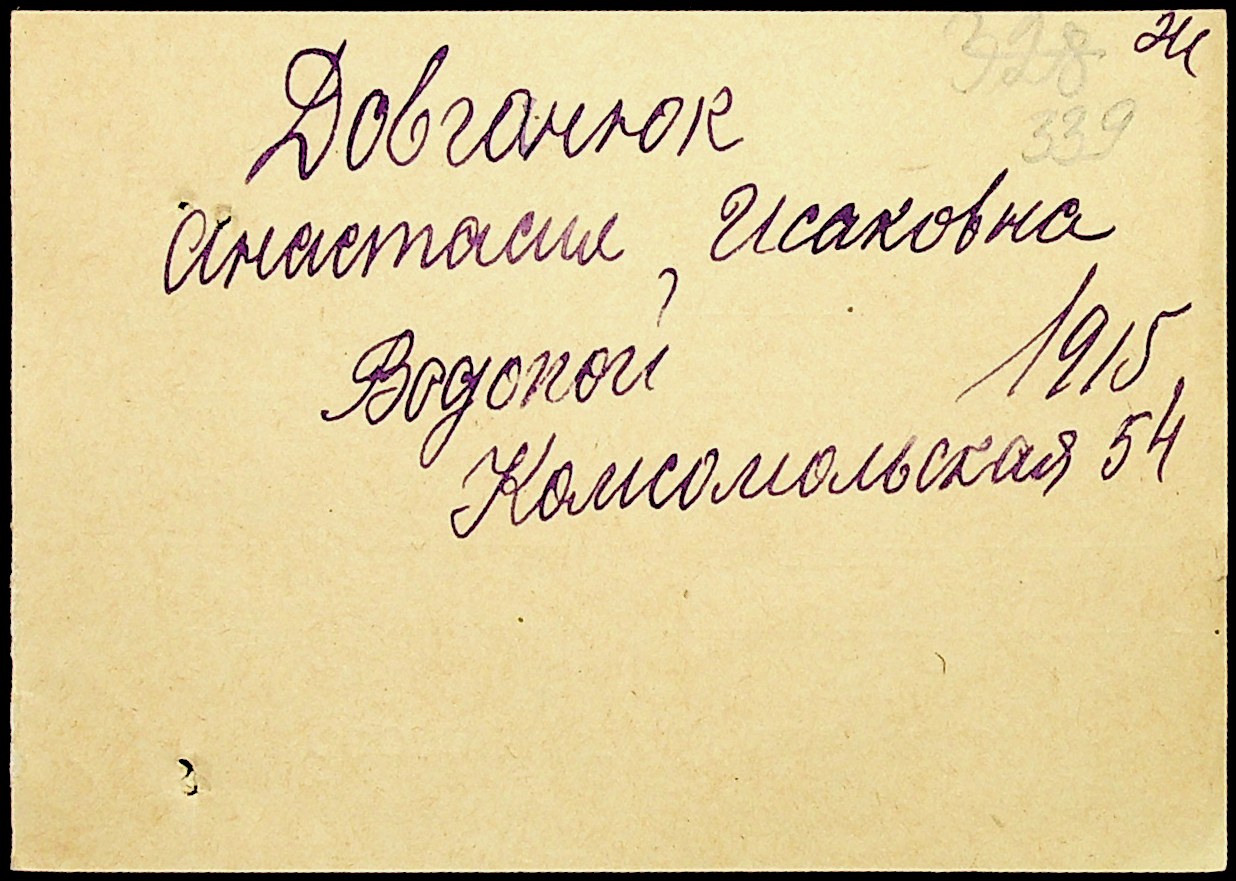 328 Ж
339
Довганюк
Анастасия Исаковна
Водопой 1915
Комсомольская 54